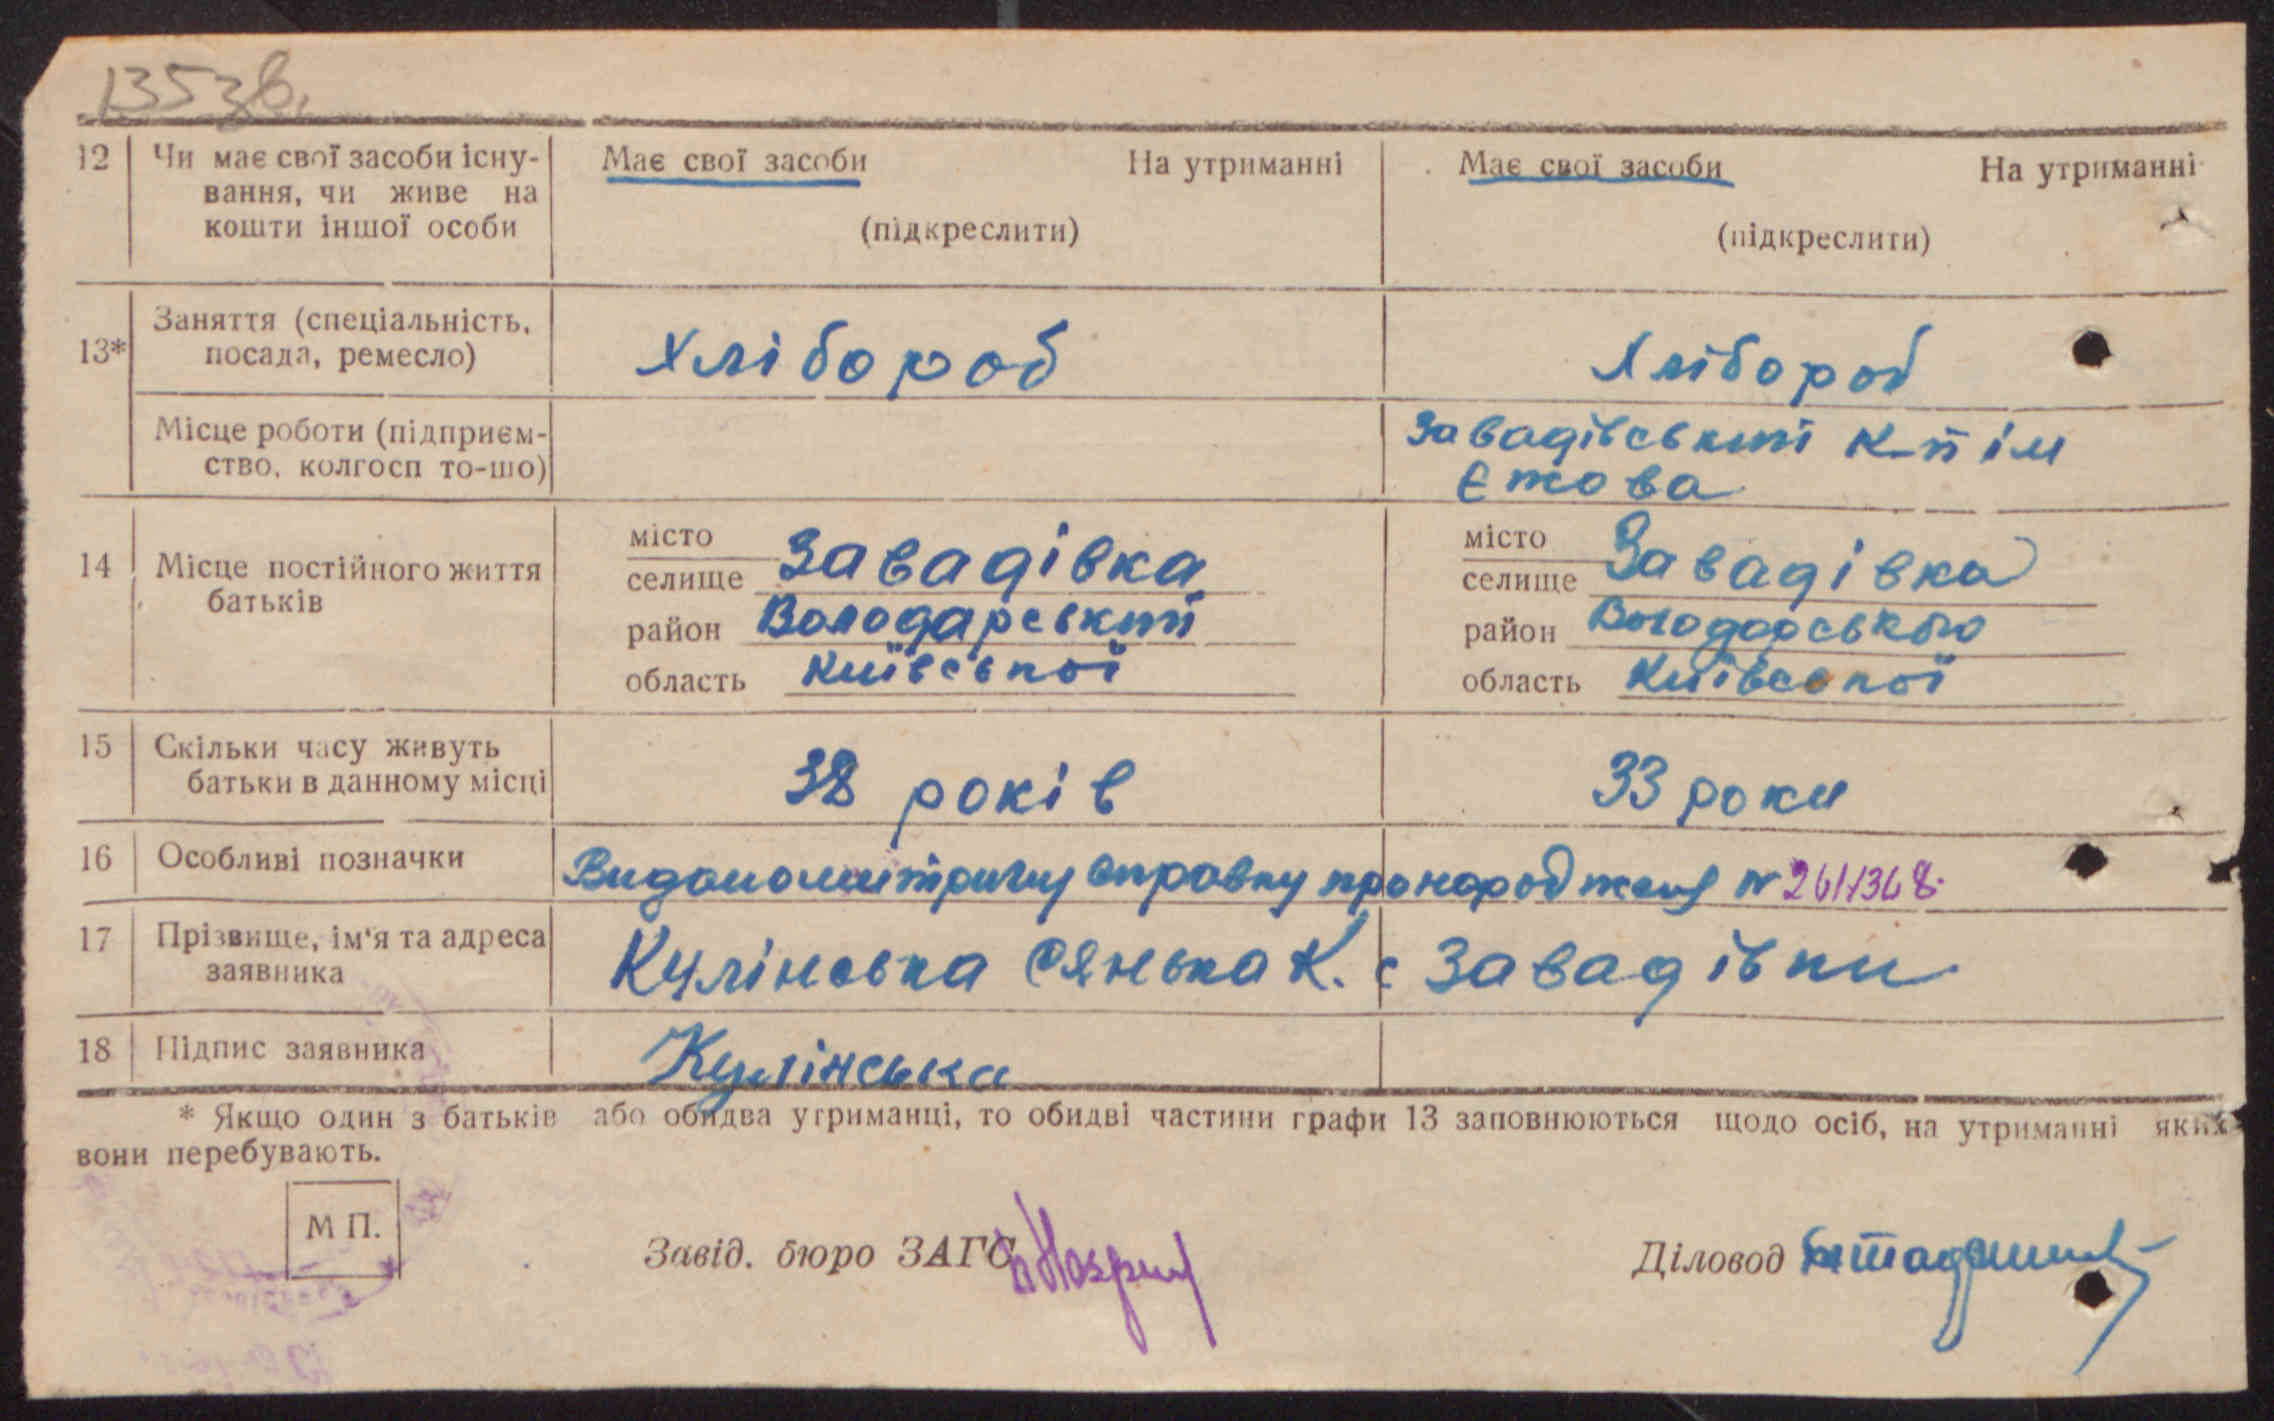 12 Чи має свої засоби існу- Має свої засоби На утриманні Має свої засоби На утриманні
вання, чи живе на
кошти іншої особи (підкреслити) (підкреслити)
13* Заняття (спеціальність, посада, ремесло) Хлібороб Хлібороб
Місце роботи (підприєм- Завадівський к-п ім
ство, колгосп то-шо) Єжова
14 Місце постійного життя батьків
місто селище Завадівка місто селище Завадівка
район Володарський район Володарського
область Київської область Київської
15 Скільки часу живуть
батьки в данному місці 38 років 33 роки
16 Особливі позначки Видано справку про народжену № 2611368.
17 Прізвище, ім'я та адреса
заявника Кулінська Янька К. с Завадівки
18 Підпис заявника Кулінська
* Якщо один з батьків або обидва утриманці, то обидві частини графи 13 заповнюються щодо осіб, на утриманні яких
вони перебувають.
М П.
Завід. бюро ЗАГС Діловод